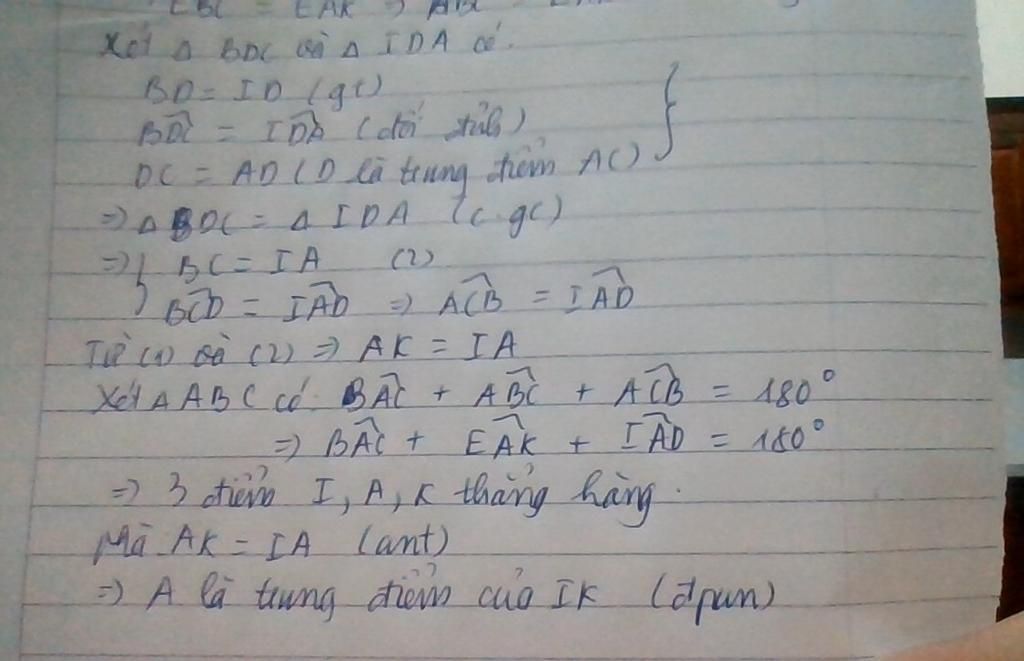 EBC = EAK => ABC
Xét Δ BDC và Δ IDA có.
BD = ID (gt)
BDC^ = IDA^ (đối đỉnh)
DC = AD (D là trung điểm AC) }
=> Δ BDC = Δ IDA (c.gc)
=> { BC = IA (2)
BCD^ = IAD^ => ACB^ = IAD^
Từ (1) và (2) => AK = IA
Xét Δ ABC có BAC^ + ABC^ + ACB^ = 180°
=> BAC^ + EAK^ + IAD^ = 180°
=> 3 điểm I, A, K thẳng hàng.
Mà AK = IA (cmt)
=> A là trung điểm của IK (đpcm)